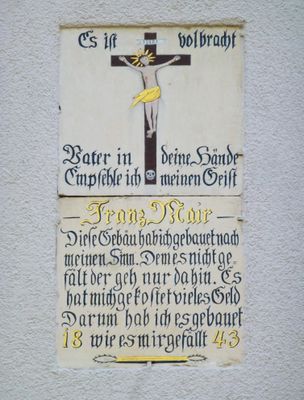 Es ist volbracht
Vater in deine Hände
Empfehle ich meinen Geist
Franz Mair
Diese Gebäu hab ich gebauet nach
meinen Sinn. Dem es nicht ge-
fält der geh nur da hin. Es
hat mich gekostet vieles Geld
Darum hab ich es gebauet
18 wie es mir gefällt 43